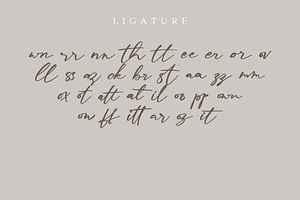 LIGATURE
wn rr nn th tt ee er or ov
ll ss az ck br st aa zz mm
ox ot att at il oo pp own
ow ff itt ar oz it